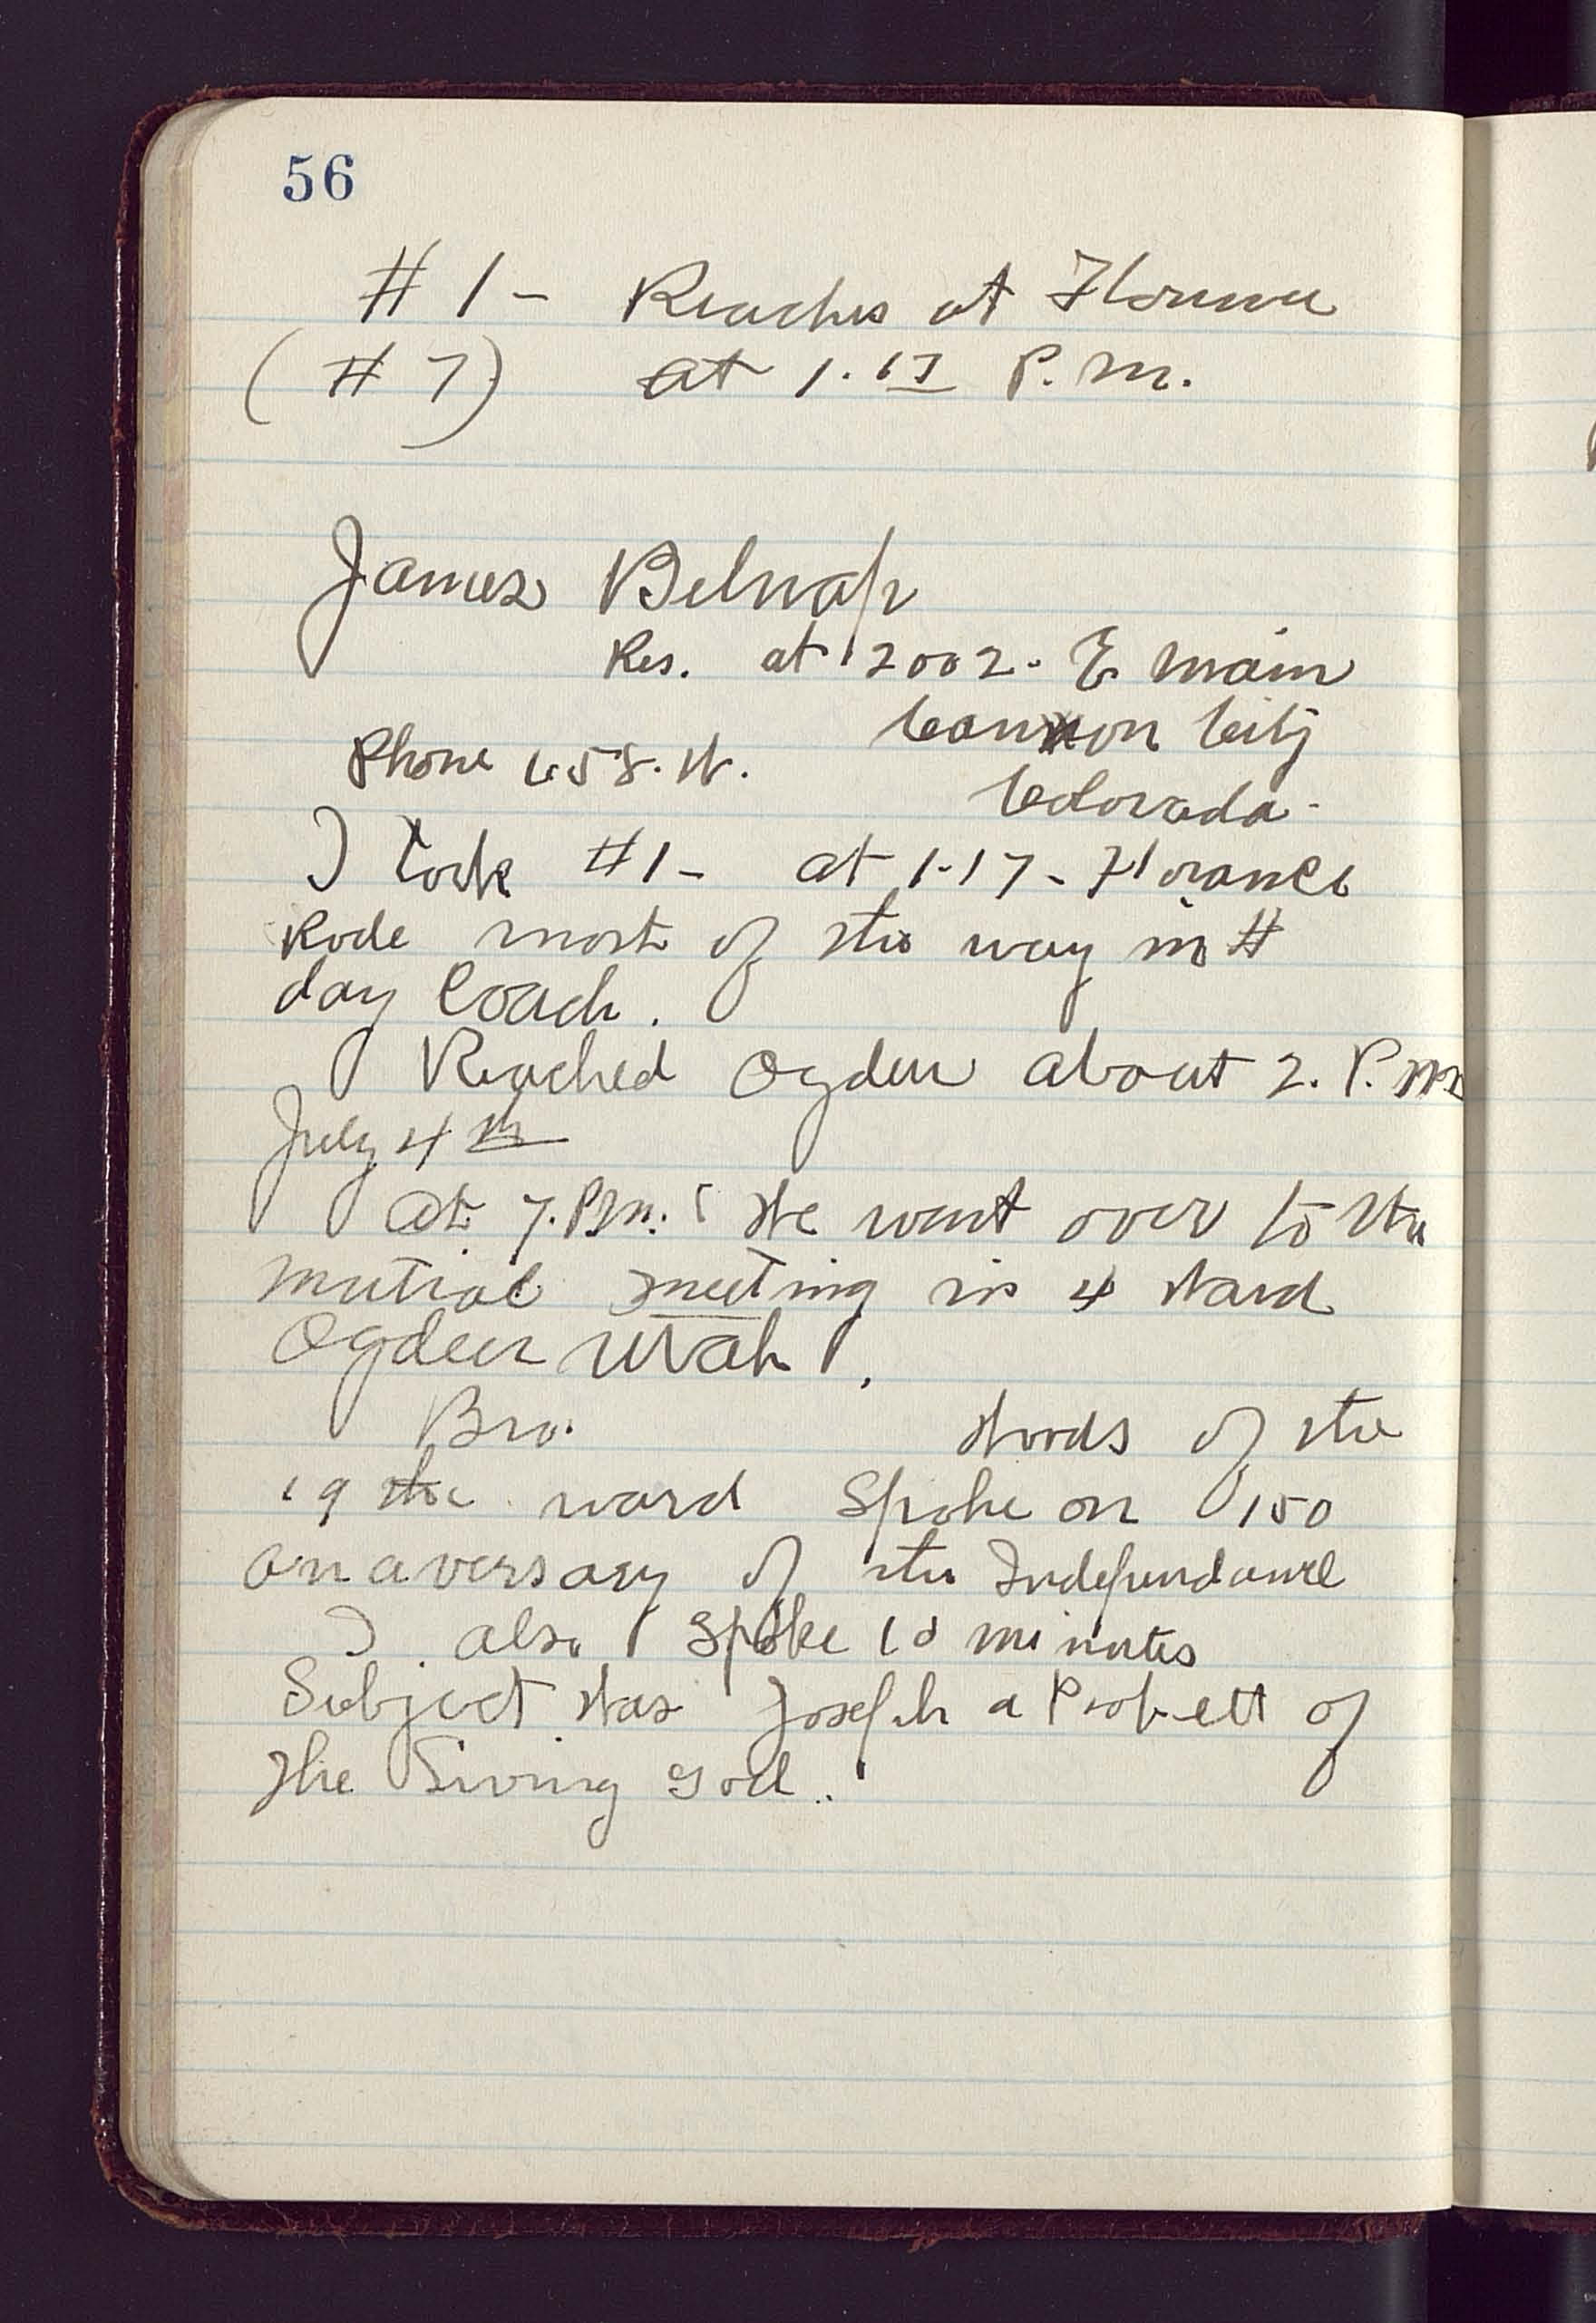 56
# 1 - Reaches at Florence
(# 7) at 1.17 P.M.
James Belnap
Res. at 2002. E Main
Cannon City
Phone 658.W.
Colorada -
I took #1 - at 1.17 - Florance
Rode most of the way in #
day Coach.
Reached Ogden about 2. P.M
July 4th
At 7.P.M. We went over to the
Mutial meeting in 4 Ward
Ogden Utah.
Bro. Woods of the
19 the ward Spoke on 150
anaversary of the Independance
I also Spoke 10 minutes
Subject was Joseph a Profett of
The Living God..